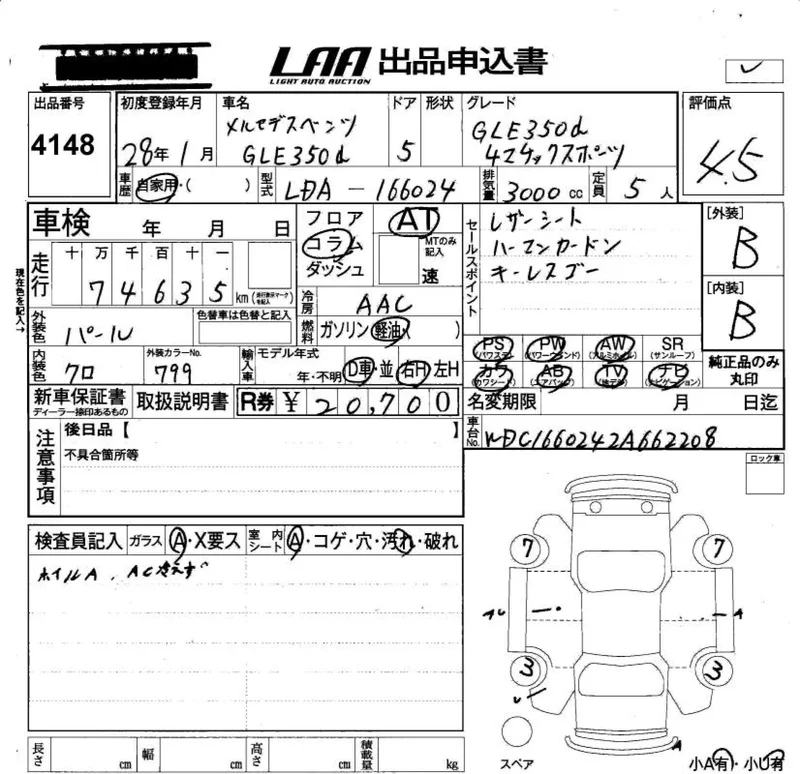 LAA 出品申込書
LIGHT AUTO AUCTION
出品番号
4148
初度登録年月
28年1月
車名
メルセデスベンツ
GLE350d
ドア
5
形状
グレード
GLE350d
4マチックスポーツ
評価点
4.5
車歴
自家用・( )
型式
LDA-166024
排気量
3000cc
定員
5人
車検 年 月 日
フロア
コラム
ダッシュ
AT
MTのみ記入
速
セールスポイント
レザーシート
ハーマンカードン
キーレスゴー
[外装]
B
[内装]
B
現在色を記入→
走行
十 万 千 百 十 一
7 4 6 3 5 km
(走行表示マークを記入)
冷房
AAC
外装色
パール
色替車は色替と記入
燃料
ガソリン・軽油( )
PS
(パワステ)
PW
(パワーウィンド)
AW
(アルミホイル)
SR
(サンルーフ)
カワ
(カワシート)
AB
(エアバッグ)
TV
(地デジ)
ナビ
(ナビゲーション)
純正品のみ
丸印
内装色
クロ
外装カラーNo.
799
輸入車
モデル年式
年・不明
D車・並
右H 左H
新車保証書
ディーラー捺印あるもの
取扱説明書
R券 ¥ 20,700
名変期限 月 日迄
車台No.
WDC1660242A662208
注意事項
後日品【 】
不具合箇所等
ロック車
検査員記入
ガラス
A・X要ス
室内シート
A・コゲ・穴・汚れ・破れ
ホイルA、AC冷えず
7
7
A
3
3
A
スペア
小A有・小U有
長さ cm
幅 cm
高さ cm
積載量 kg